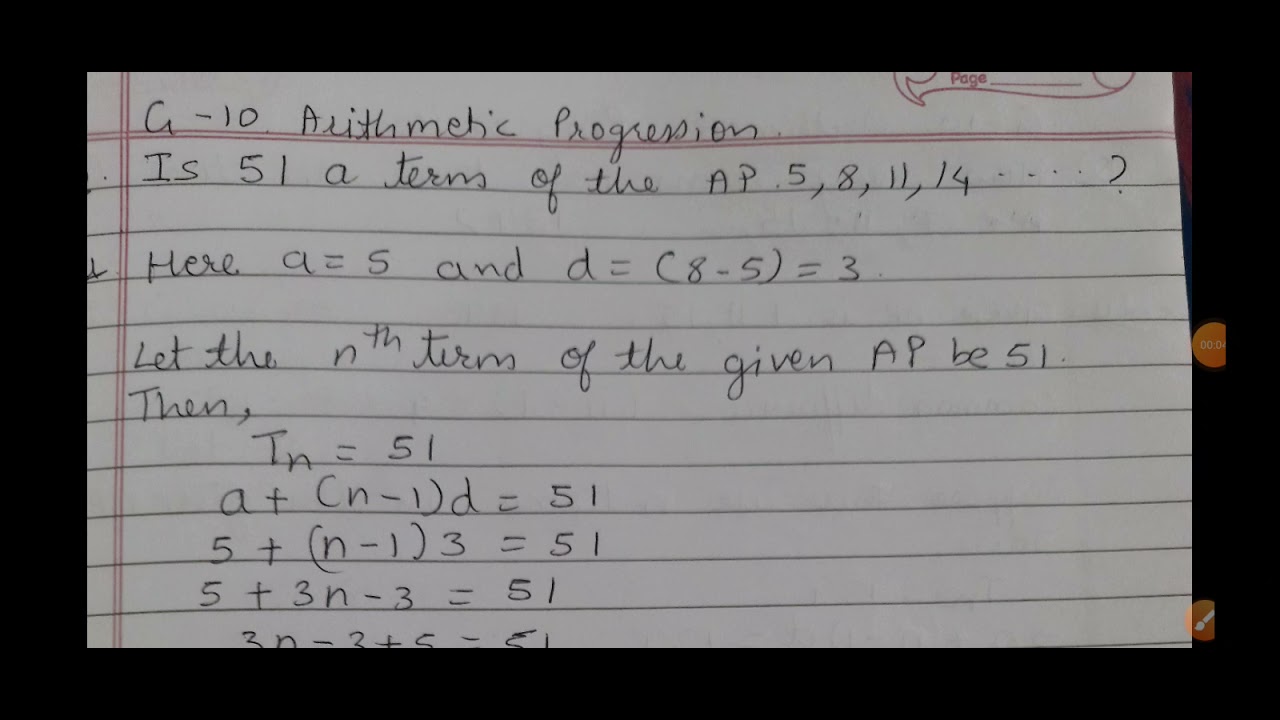 Page
G-10 Arithmetic Progression.
Is 51 a term of the AP. 5, 8, 11, 14 ..... ?
Here a = 5 and d = (8-5) = 3.
Let the nth term of the given AP be 51.
Then,
Tn = 51
a + (n-1)d = 51
5 + (n-1)3 = 51
5 + 3n - 3 = 51
3n - 3 + 5 = 51
00:04